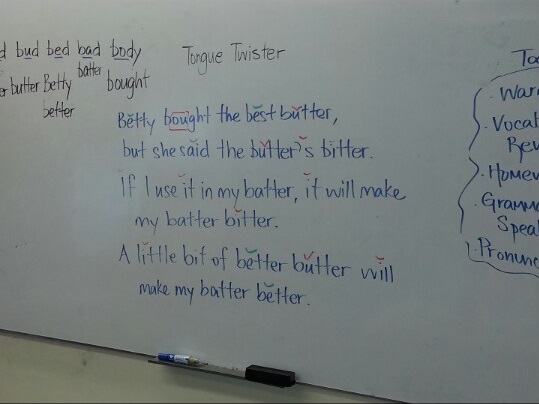 bud bed bad body
Tongue Twister
butter Betty batter bought
better
Betty bought the best butter,
but she said the butter's bitter.
If I use it in my batter, it will make
my batter bitter.
A little bit of better butter will
make my batter better.